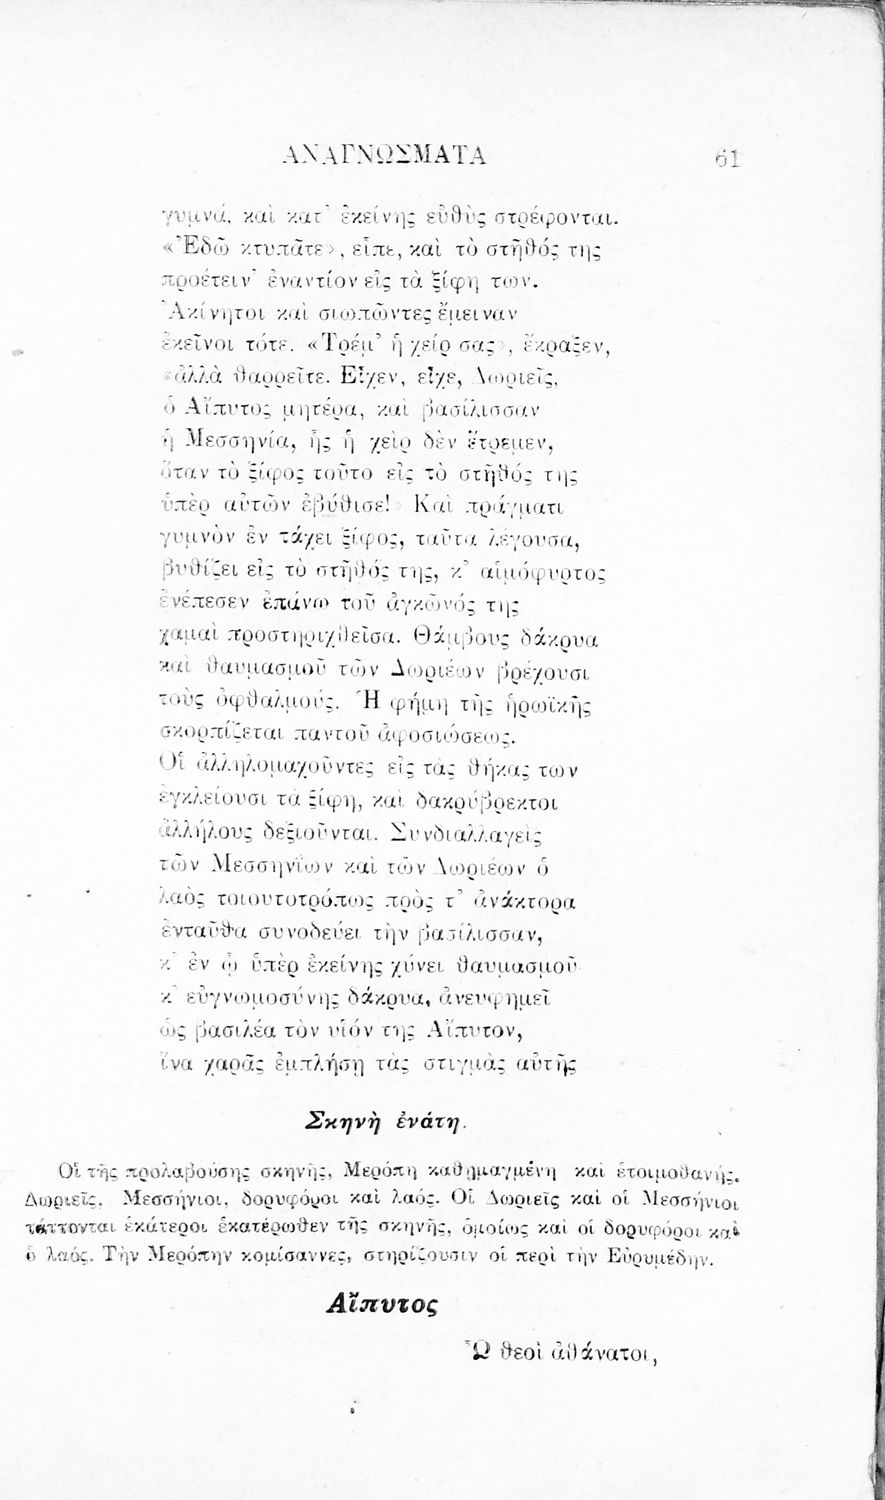 ΑΝΑΓΝΩΣΜΑΤΑ 61
γυμνά, καὶ κατ᾿ ἐκείνης εὐθὺς στρέφονται.
«Ἐδῶ κτυπᾶτε», εἶπε, καὶ τὸ στῆθός της
προέτειν᾿ ἐναντίον εἰς τὰ ξίφη των.
Ἀκίνητοι καὶ σιωπῶντες ἔμειναν
ἐκεῖνοι τότε. «Τρέμ᾿ ἡ χείρ σας», ἔκραξεν,
«ἀλλὰ θαρρεῖτε. Εἶχεν, εἶχε, Δωριεῖς,
ὁ Αἴπυτος μητέρα, καὶ βασίλισσαν
ἡ Μεσσηνία, ἧς ἡ χεὶρ δὲν ἔτρεμεν,
ὅταν τὸ ξίφος τοῦτο εἰς τὸ στῆθός της
ὑπὲρ αὐτῶν ἐβύθισε!» Καὶ πράγματι
γυμνὸν ἐν τάχει ξίφος, ταῦτα λέγουσα,
βυθίζει εἰς τὸ στῆθός της, κ᾿ αἱμόφυρτος
ἐνέπεσεν ἐπάνω τοῦ ἀγκῶνός της
χαμαὶ προστηριχθεῖσα. Θάμβους δάκρυα
καὶ θαυμασμοῦ τῶν Δωριέων βρέχουσι
τοὺς ὀφθαλμούς. Ἡ φήμη τῆς ἡρωϊκῆς
σκορπίζεται παντοῦ ἀφοσιώσεως.
Οἱ ἀλληλομαχοῦντες εἰς τὰς θήκας των
ἐγκλείουσι τὰ ξίφη, καὶ δακρύβρεκτοι
ἀλλήλους δεξιοῦνται. Συνδιαλλαγεὶς
τῶν Μεσσηνίων καὶ τῶν Δωριέων ὁ
λαὸς τοιουτοτρόπως πρὸς τ᾿ ἀνάκτορα
ἐνταῦθα συνοδεύει τὴν βασίλισσαν,
κ᾿ ἐν ᾧ ὑπὲρ ἐκείνης χύνει θαυμασμοῦ
κ᾿ εὐγνωμοσύνης δάκρυα, ἀνευφημεῖ
ὡς βασιλέα τὸν υἱόν της Αἴπυτον,
ἵνα χαρᾶς ἐμπλήσῃ τὰς στιγμὰς αὐτῆς
Σκηνὴ ἐνάτη.
Οἱ τῆς προλαβούσης σκηνῆς, Μερόπη καθῃμαγμένη καὶ ἑτοιμοθανής,
Δωριεῖς, Μεσσήνιοι, δορυφόροι καὶ λαός. Οἱ Δωριεῖς καὶ οἱ Μεσσήνιοι
τάττονται ἑκάτεροι ἑκατέρωθεν τῆς σκηνῆς, ὁμοίως καὶ οἱ δορυφόροι καὶ
ὁ λαός. Τὴν Μερόπην κομίσαννες, στηρίζουσιν οἱ περὶ τὴν Εὐρυμέδην.
Αἴπυτος
Ὢ θεοὶ ἀθάνατοι,